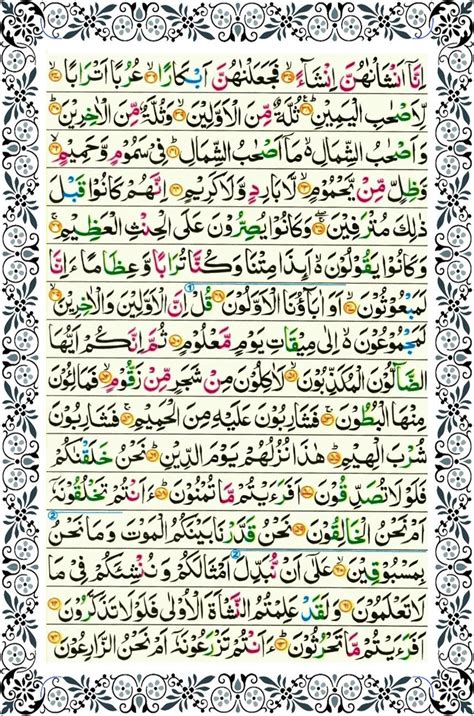 اِنَّاۤ اَنْشَاْنٰهُنَّ اِنْشَآءًۙ ۳۵ فَجَعَلْنٰهُنَّ اَبْكَارًاۙ ۳۶ عُرُبًا اَتْرَابًاۙ ۳۷
لِّاَصْحٰبِ الْيَمِيْنِؕ ۳۸ ثُلَّةٌ مِّنَ الْاَوَّلِيْنَۙ ۳۹ وَثُلَّةٌ مِّنَ الْاٰخِرِيْنَؕ ۴۰
وَاَصْحٰبُ الشِّمَالِ ۙ مَاۤ اَصْحٰبُ الشِّمَالِؕ ۴۱ فِيْ سَمُوْمٍ وَّحَمِيْمٍۙ ۴۲
وَّظِلٍّ مِّنْ يَّحْمُوْمٍۙ ۴۳ لَّا بَارِدٍ وَّلَا كَرِيْمٍ ۴۴ اِنَّهُمْ كَانُوْا قَبْلَ
ذٰلِكَ مُتْرَفِيْنَۚ ۴۵ وَكَانُوْا يُصِرُّوْنَ عَلَى الْحِنْثِ الْعَظِيْمِۚ ۴۶
وَكَانُوْا يَقُوْلُوْنَ ۙ اَئِذَا مِتْنَا وَكُنَّا تُرَابًا وَّعِظَامًا ءَاِنَّا
لَمَبْعُوْثُوْنَۙ ۴۷ اَوَاٰبَآؤُنَا الْاَوَّلُوْنَ ۴۸ قُلْ اِنَّ الْاَوَّلِيْنَ وَالْاٰخِرِيْنَۙ ۴۹
لَمَجْمُوْعُوْنَ ۙ اِلٰى مِيْقَاتِ يَوْمٍ مَّعْلُوْمٍ ۵۰ ثُمَّ اِنَّكُمْ اَيُّهَا
الضَّآلُّوْنَ الْمُكَذِّبُوْنَۙ ۵۱ لَاٰكِلُوْنَ مِنْ شَجَرٍ مِّنْ زَقُّوْمٍۙ ۵۲ فَمَالِئُوْنَ
مِنْهَا الْبُطُوْنَۚ ۵۳ فَشٰرِبُوْنَ عَلَيْهِ مِنَ الْحَمِيْمِۚ ۵۴ فَشٰرِبُوْنَ
شُرْبَ الْهِيْمِؕ ۵۵ هٰذَا نُزُلُهُمْ يَوْمَ الدِّيْنِؕ ۵۶ نَحْنُ خَلَقْنٰكُمْ
فَلَوْلَا تُصَدِّقُوْنَ ۵۷ اَفَرَءَيْتُمْ مَّا تُمْنُوْنَؕ ۵۸ ءَاَنْتُمْ تَخْلُقُوْنَهٗۤ
اَمْ نَحْنُ الْخٰلِقُوْنَ ۵۹ نَحْنُ قَدَّرْنَا بَيْنَكُمُ الْمَوْتَ وَمَا نَحْنُ
بِمَسْبُوْقِيْنَۙ ۶۰ عَلٰۤى اَنْ نُّبَدِّلَ اَمْثَالَكُمْ وَنُنْشِئَكُمْ فِيْ مَا
لَا تَعْلَمُوْنَ ۶۱ وَلَقَدْ عَلِمْتُمُ النَّشْاَةَ الْاُوْلٰى فَلَوْلَا تَذَكَّرُوْنَ ۶۲
اَفَرَءَيْتُمْ مَّا تَحْرُثُوْنَؕ ۶۳ ءَاَنْتُمْ تَزْرَعُوْنَهٗۤ اَمْ نَحْنُ الزّٰرِعُوْنَ